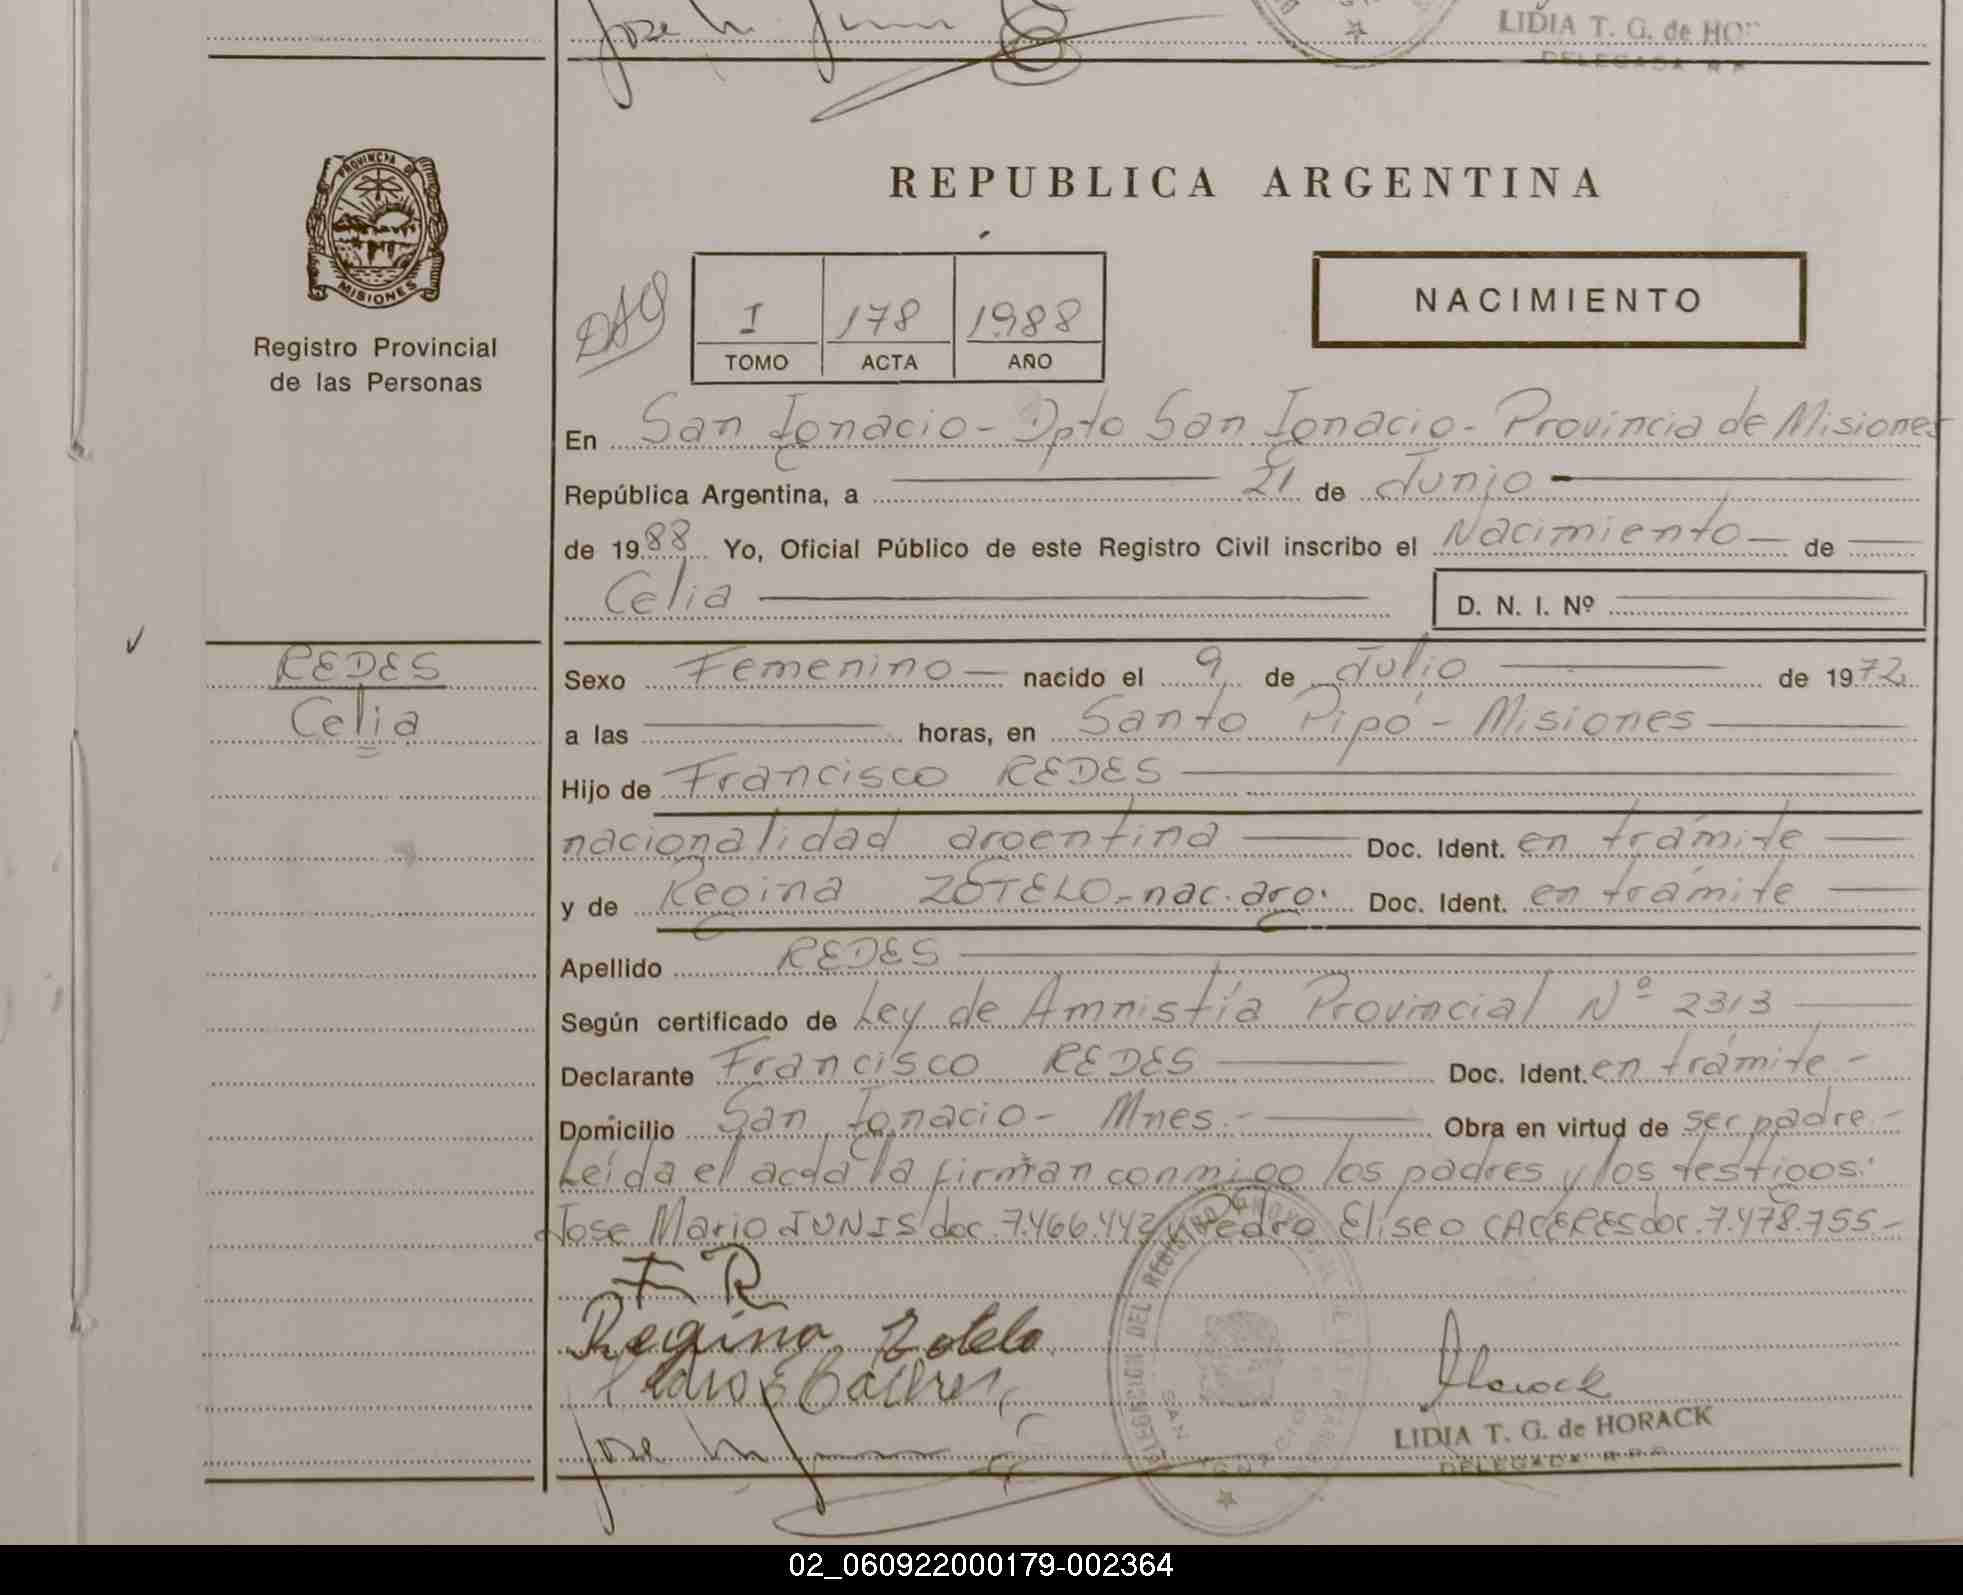 Jose M.
LIDIA T. G. de HO
DELEGADA R P
PROVINCIA DE
MISIONES
REPUBLICA ARGENTINA
I 178 1988
TOMO ACTA AÑO
NACIMIENTO
Registro Provincial
de las Personas
En San Ignacio - Dpto San Ignacio - Provincia de Misiones
República Argentina, a 21 de Junio
de 1988 Yo, Oficial Público de este Registro Civil inscribo el Nacimiento de
Celia D. N. I. Nº
REDES
Celia
Sexo Femenino nacido el 9 de Julio de 1972
a las horas, en Santo Pipó - Misiones
Hijo de Francisco REDES
nacionalidad argentina Doc. Ident. en trámite
y de Regina ZOTELO - nac. arg. Doc. Ident. en trámite
Apellido REDES
Según certificado de Ley de Amnistía Provincial Nº 2313
Declarante Francisco REDES Doc. Ident. en trámite -
Domicilio San Ignacio - Mnes. - Obra en virtud de ser padre -
Leída el acta la firman conmigo los padres y los testigos:
Jose Mario JUNIS doc. 7.466.442 y Pedro Eliseo CACERES doc. 7.478.755 -
F R
Regina Zotelo
Pedro E Caceres
Jose M
Horack
LIDIA T. G. de HORACK
DELEGADA R P P
DELEGACION DEL REGISTRO PROVINCIAL DE LAS PERSONAS
SAN IGNACIO
02_060922000179-002364